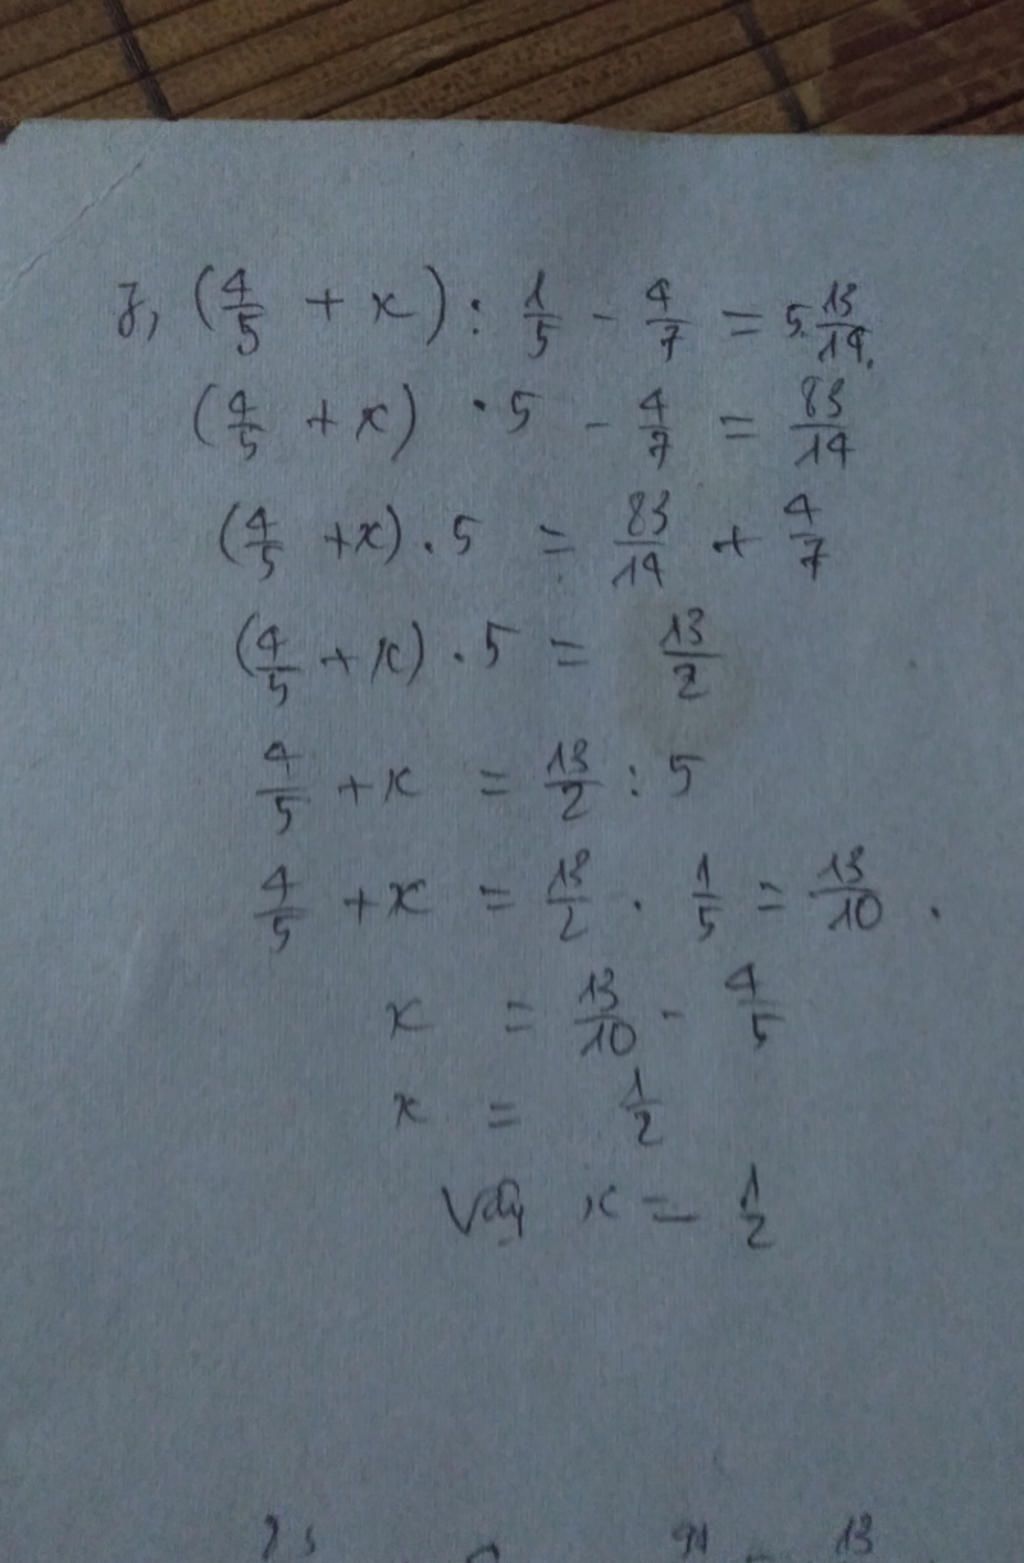 z, (4/5 + x) : 1/5 - 4/7 = 5. 13/14.
(4/5 + x) · 5 - 4/7 = 83/14
(4/5 + x) . 5 = 83/14 + 4/7
(4/5 + x) . 5 = 13/2
4/5 + x = 13/2 : 5
4/5 + x = 13/2 . 1/5 = 13/10 .
x = 13/10 - 4/5
x = 1/2
Vậy x = 1/2
13